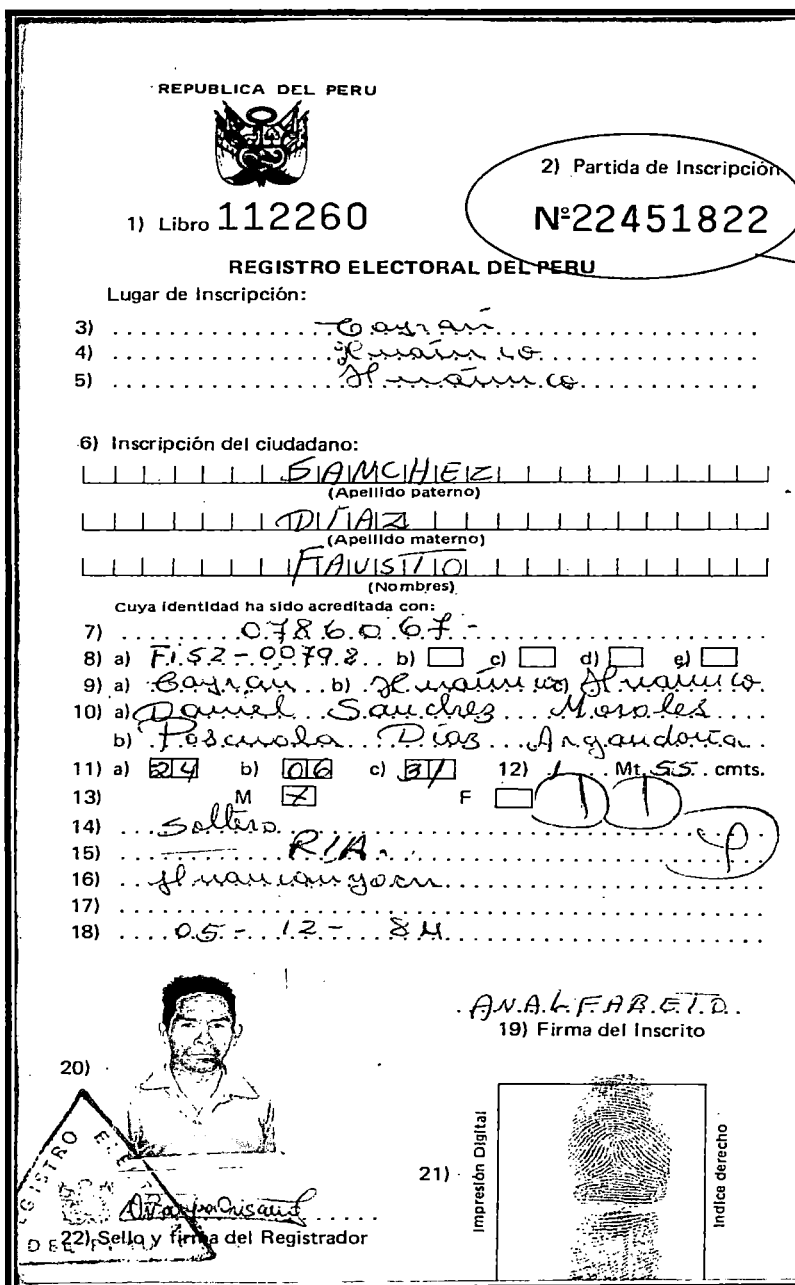 REPUBLICA DEL PERU
2) Partida de Inscripción
1) Libro 112260
Nº22451822
REGISTRO ELECTORAL DEL PERU
Lugar de Inscripción:
3) Cayrán
4) Huánuco
5) Huánuco
6) Inscripción del ciudadano:
SANCHEZ
(Apellido paterno)
DIAZ
(Apellido materno)
FAUSTO
(Nombres)
Cuya identidad ha sido acreditada con:
7) 0786067-
8) a) F.I.52-00798 b) c) d) e)
9) a) Cayrán b) Huánuco c) Huánuco
10) a) Daniel Sanchez Morales
b) Pascuala Dias Argandoña
11) a) 24 b) 06 c) 31 12) 1 Mt. 55 cmts.
13) M X F
14) Soltero
15) RIA.
16)
17)
18) 05-12-84
ANALFABETO
19) Firma del Inscrito
20)
21) Impresión Digital
Indice derecho
22) Sello y firma del Registrador